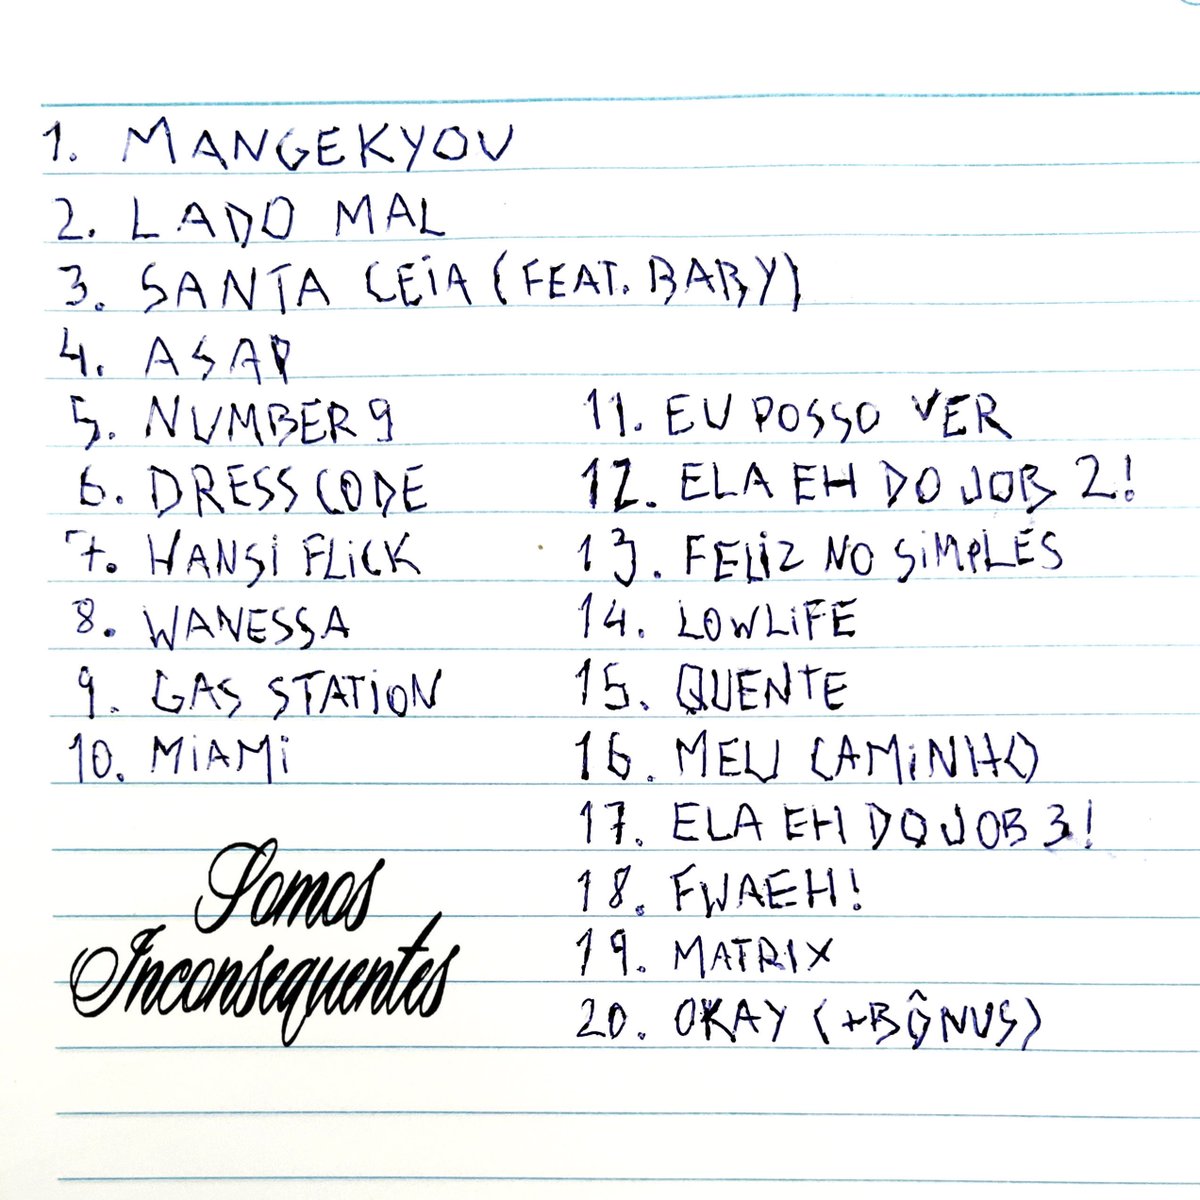 1. MANGEKYOU
2. LADO MAL
3. SANTA CEiA (FEAT. BABY)
4. ASAP
5. NUMBER 9
6. DRESSCODE
7. HANSi FLiCK
8. WANESSA
9. GAS STATiON
10. MiAMi
11. EU POSSO VER
12. ELA EH DO JOB 2!
13. FELiZ NO SiMPLES
14. LOWLiFE
15. QUENTE
16. MEU CAMiNHO
17. ELA EH DO JOB 3!
18. FWAEH!
19. MATRIX
20. OKAY (+BÔNUS)
Somos
Inconsequentes